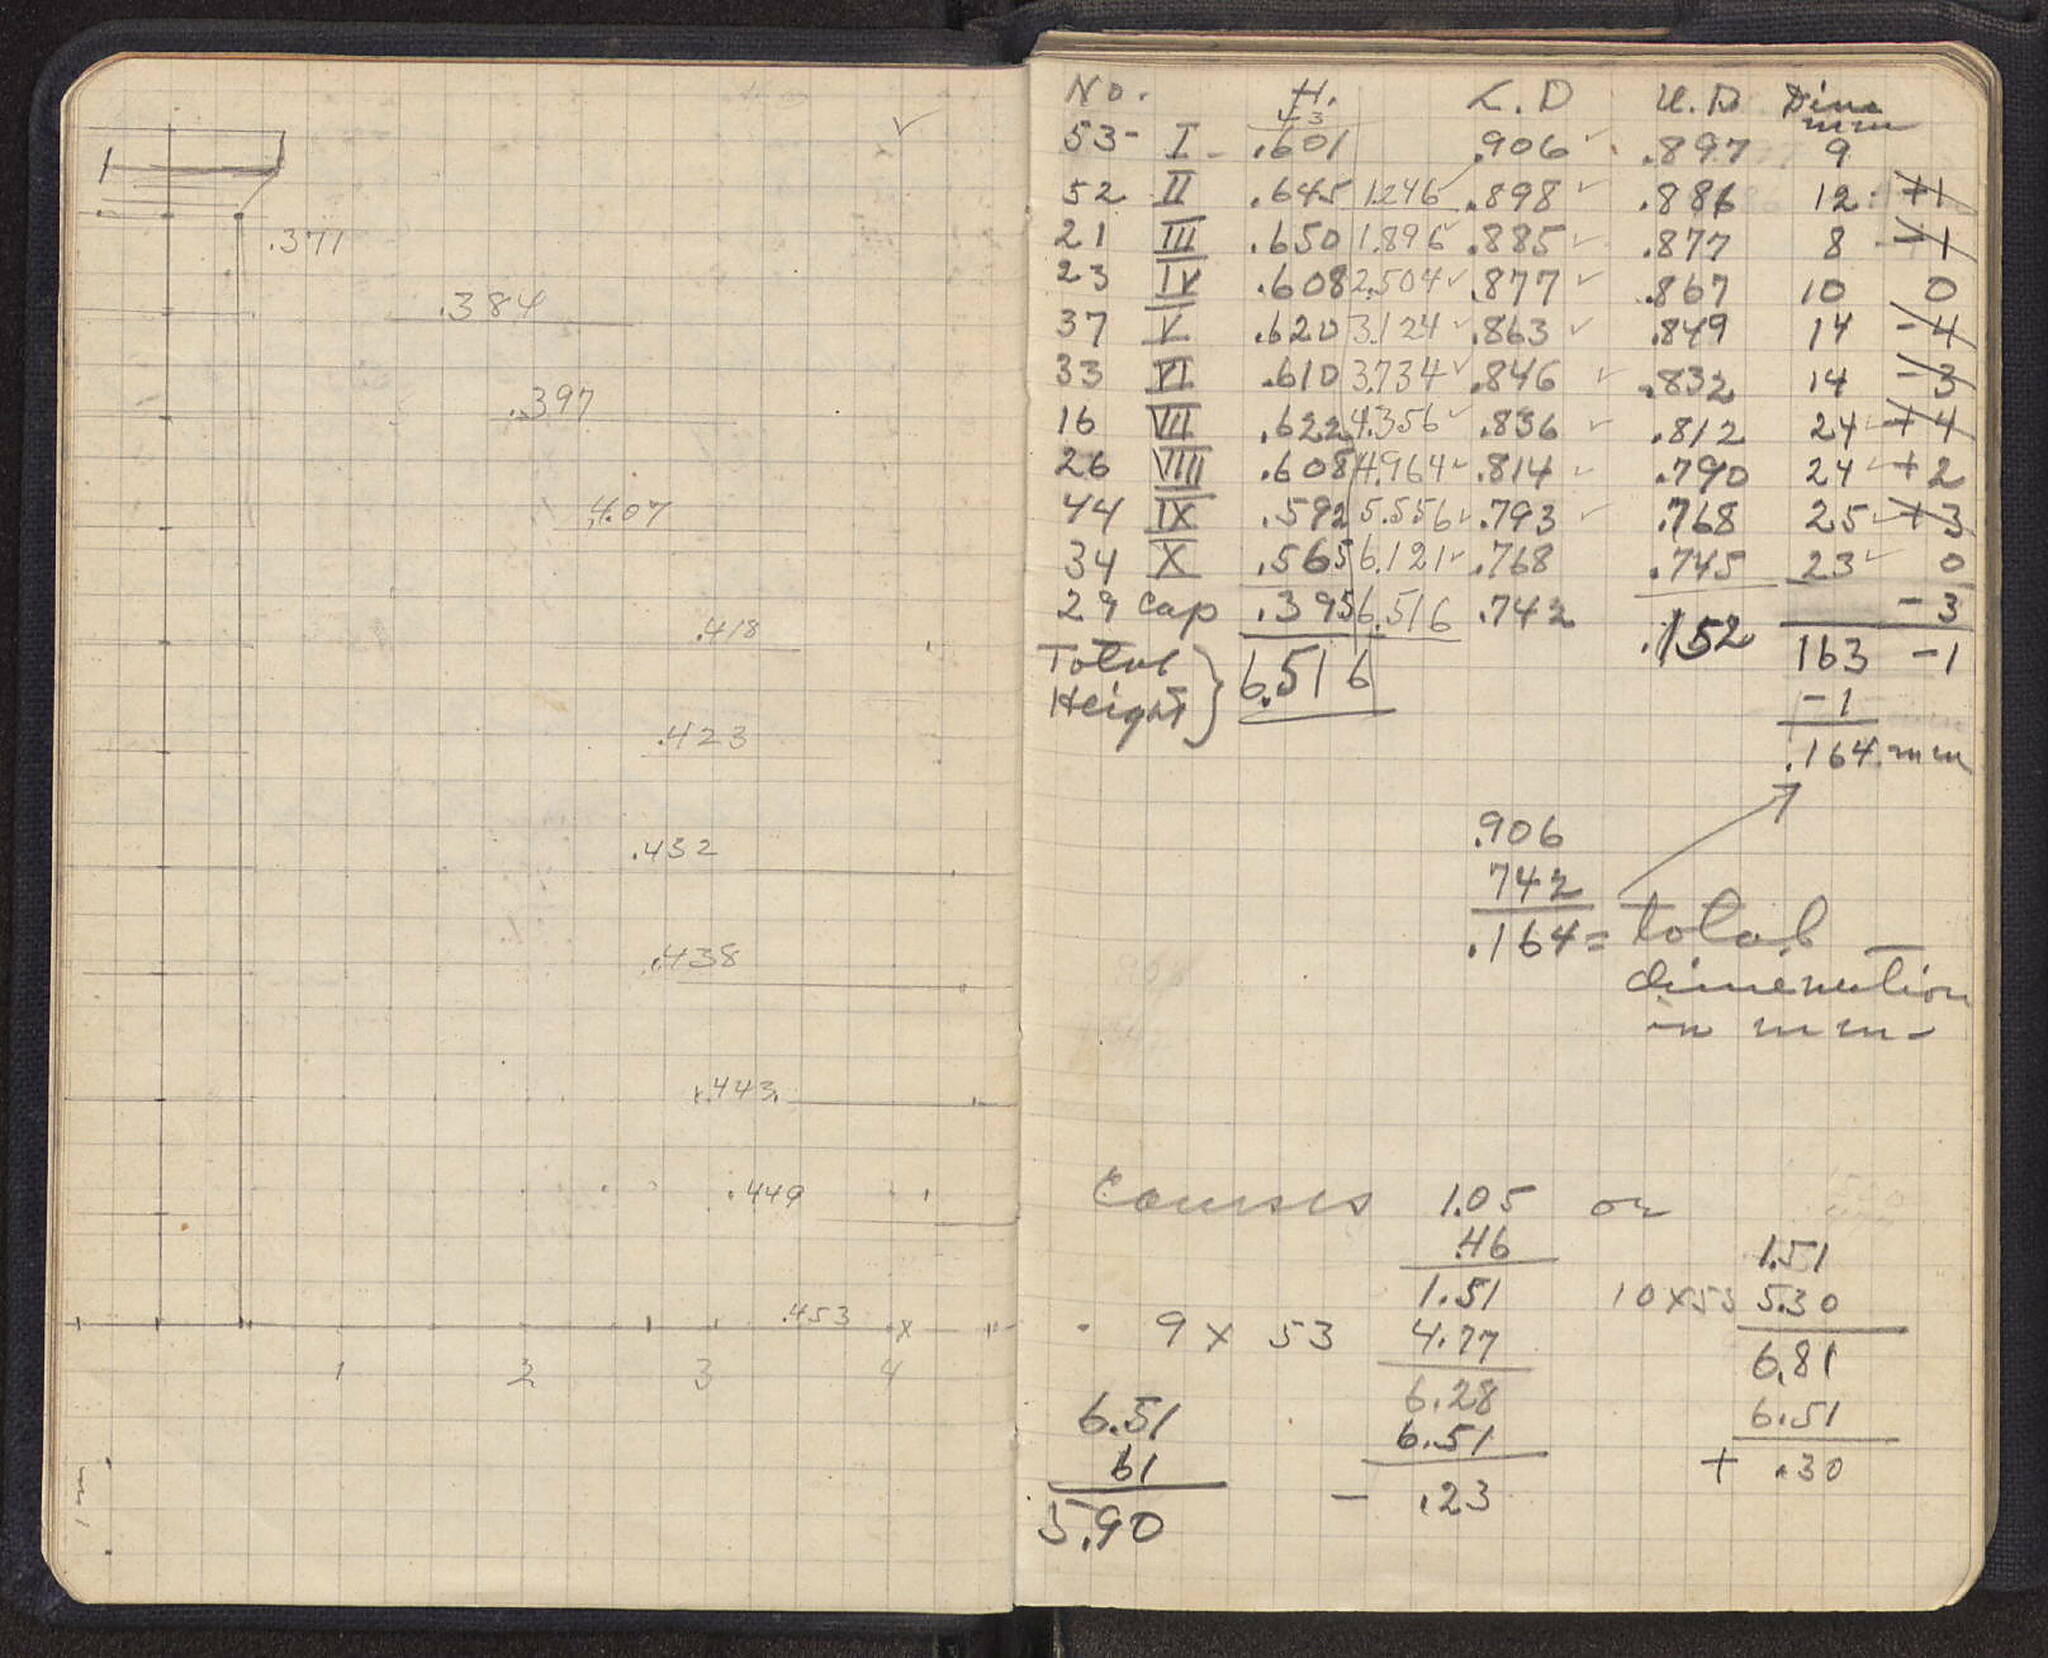 .371
.384
.397
.407
.418
.423
.432
.438
.443
.449
.453 x
1 2 3 4
No. H. L.D U.D Dim
mm
53- I .601 .906 ✓ .897 9
52 II .645 1.246 ✓ .898 ✓ .886 12 +1
21 III .650 1.896 ✓ .885 ✓ .877 8 -1
23 IV .608 2.504 ✓ .877 ✓ .867 10 0
37 V .620 3.124 ✓ .863 ✓ .849 14 -4
33 VI .610 3.734 ✓ .846 ✓ .832 14 -3
16 VII .622 4.356 ✓ .836 ✓ .812 24 ✓ +4
26 VIII .608 4.964 ✓ .814 ✓ .790 24 ✓ +2
44 IX .592 5.556 ✓ .793 ✓ .768 25 ✓ +3
34 X .565 6.121 ✓ .768 .745 23 ✓ 0
29 Cap .395 6.516 .742 -3
Total
Height } 6.516 .152 163 -1
-1
.164 mm
.906
742
.164 = total
dimenution
in mm-
Courses 1.05 or
.46 1.51
1.51 10 x 53 5.30
9 x 53 4.77 6.81
6.28 6.51
6.51 6.51 + .30
61 - .23
5.90